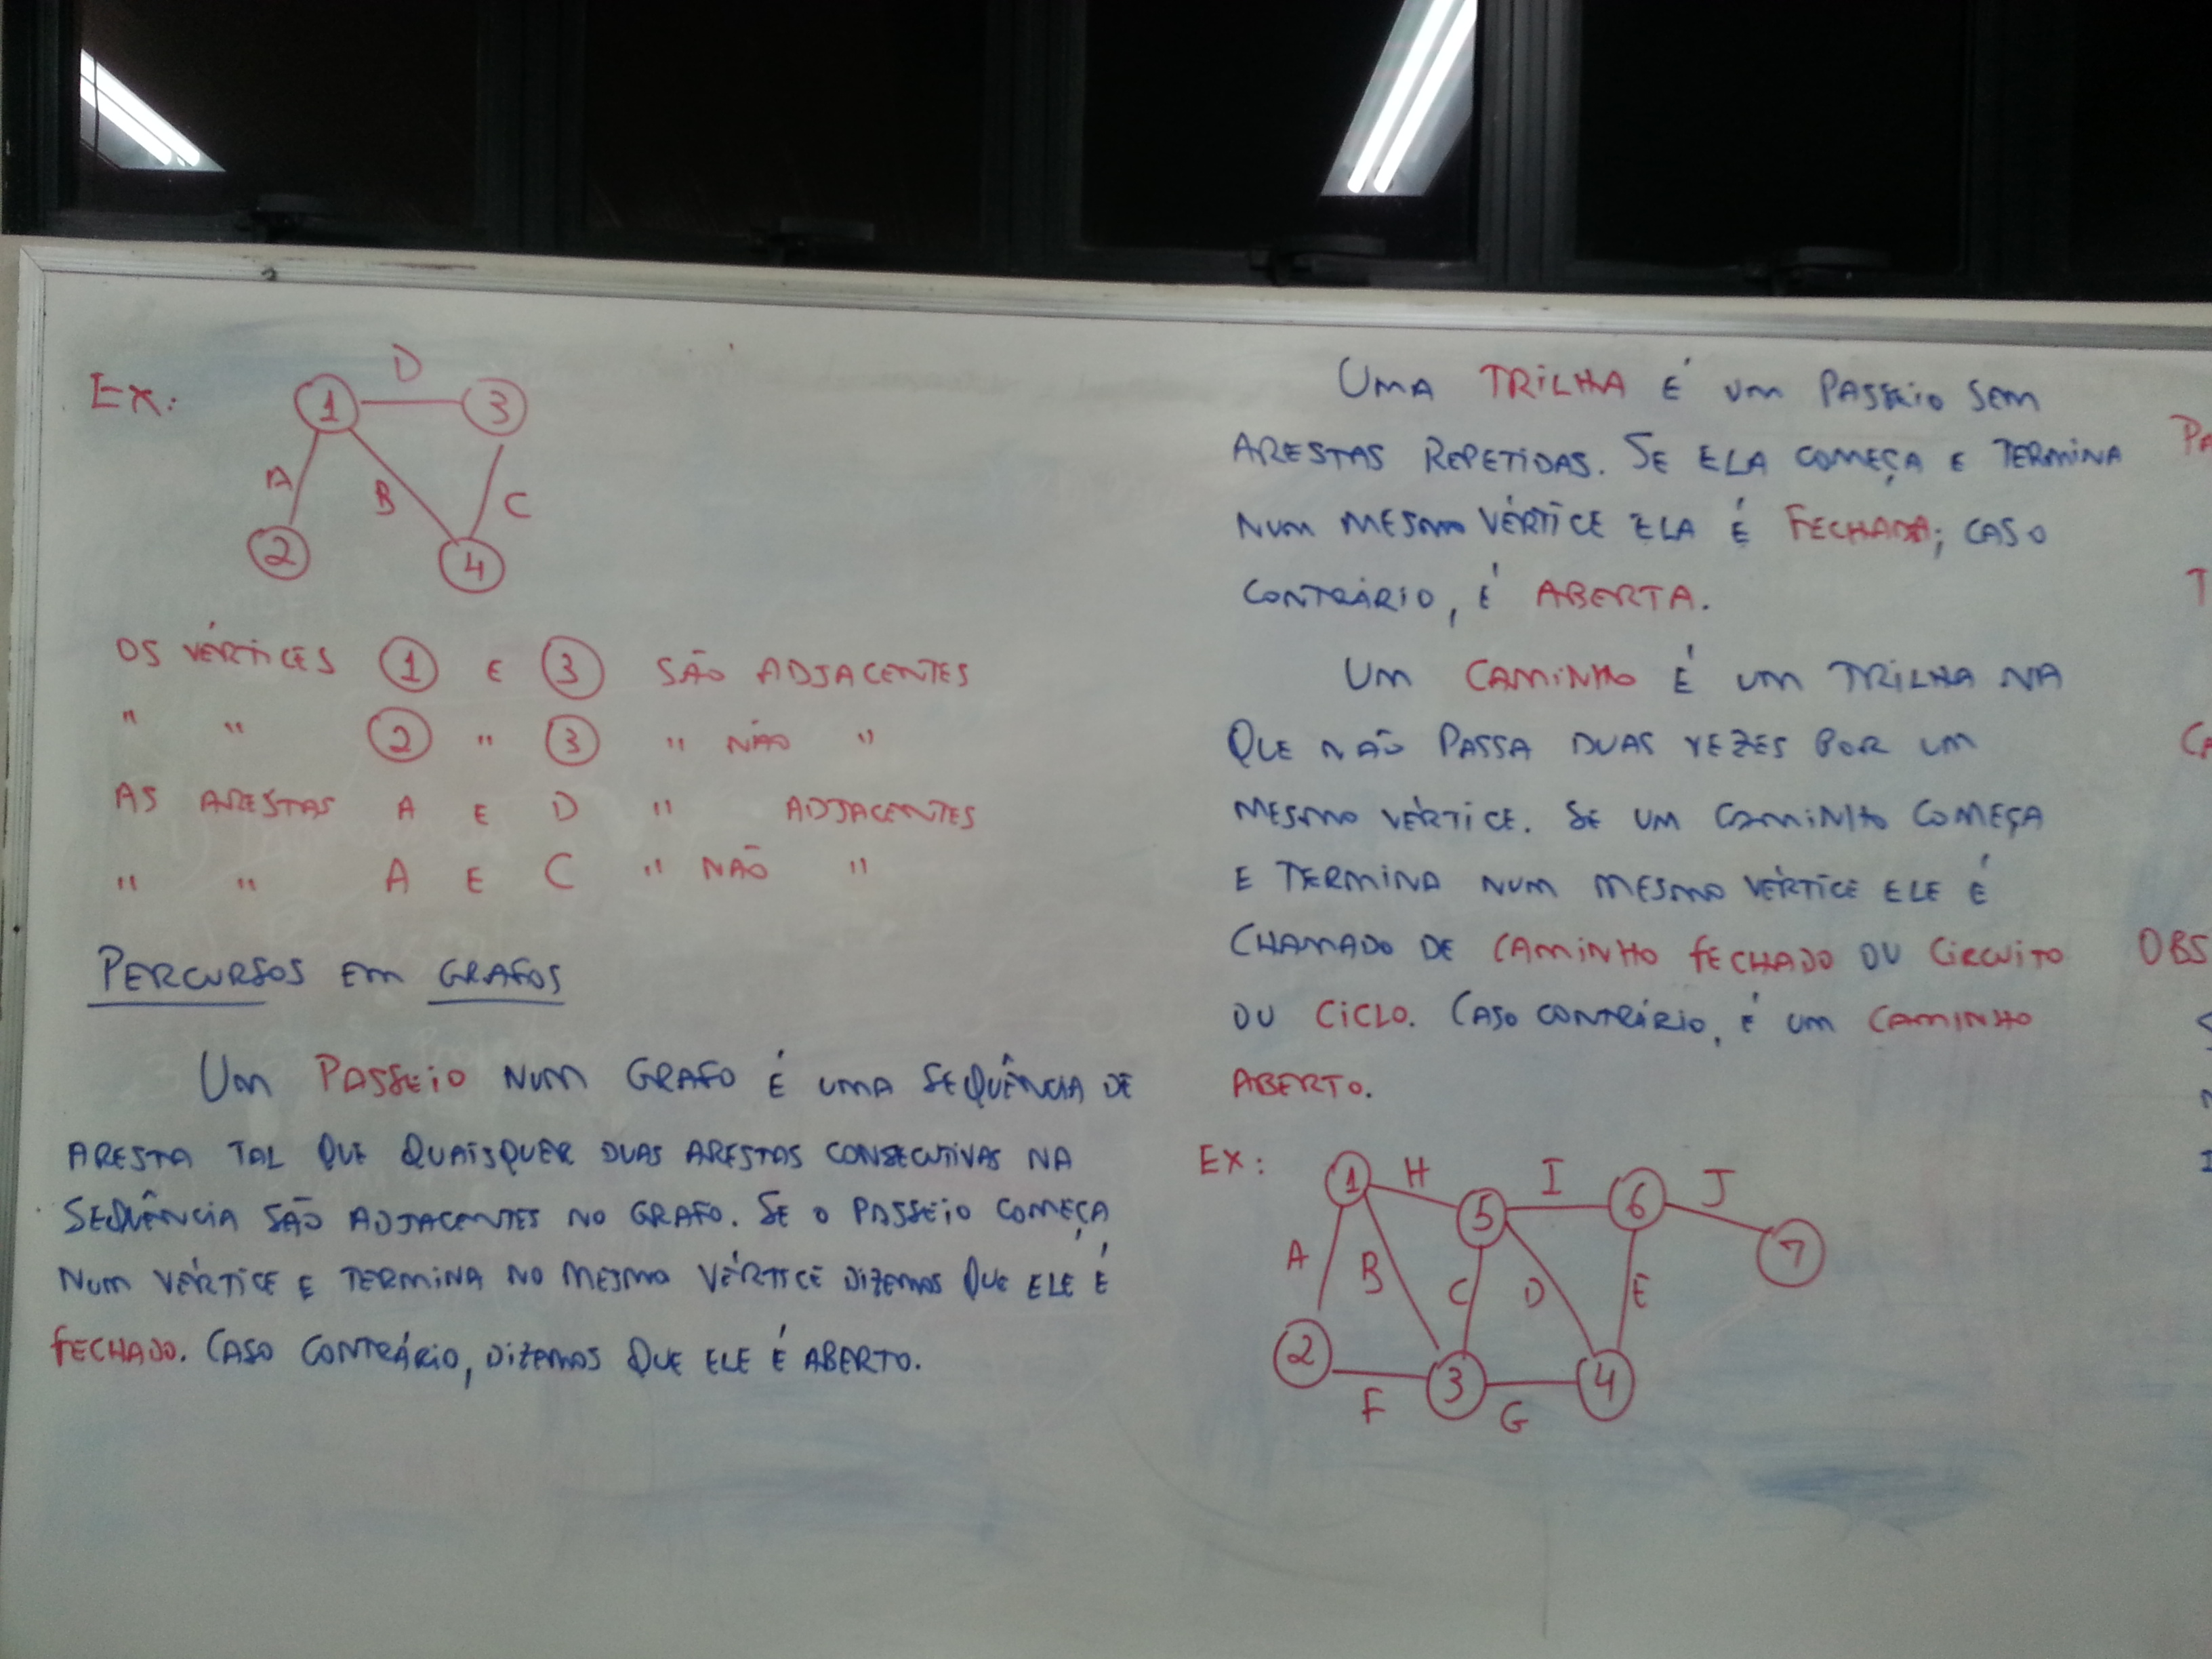 Ex:
D
1 3
A B C
2 4
OS VÉRTICES 1 E 3 SÃO ADJACENTES
" " 2 " 3 " NÃO "
AS ARESTAS A E D " ADJACENTES
" " A E C " NÃO "
PERCURSOS EM GRAFOS
UM PASSEIO NUM GRAFO É UMA SEQUÊNCIA DE
ARESTA TAL QUE QUAISQUER DUAS ARESTAS CONSECUTIVAS NA
SEQUÊNCIA SÃO ADJACENTES NO GRAFO. SE O PASSEIO COMEÇA
NUM VÉRTICE E TERMINA NO MESMO VÉRTICE DIZEMOS QUE ELE É
FECHADO. CASO CONTRÁRIO, DIZEMOS QUE ELE É ABERTO.
UMA TRILHA É UM PASSEIO SEM
ARESTAS REPETIDAS. SE ELA COMEÇA E TERMINA
NUM MESMO VÉRTICE ELA É FECHADA; CASO
CONTRÁRIO, É ABERTA.
UM CAMINHO É UM TRILHA NA
QUE NÃO PASSA DUAS VEZES POR UM
MESMO VÉRTICE. SE UM CAMINHO COMEÇA
E TERMINA NUM MESMO VÉRTICE ELE É
CHAMADO DE CAMINHO FECHADO OU CIRCUITO
OU CICLO. CASO CONTRÁRIO, É UM CAMINHO
ABERTO.
EX:
1 H 5 I 6 J 7
A B C D E
2 F 3 G 4
PA
T
CA
OBS